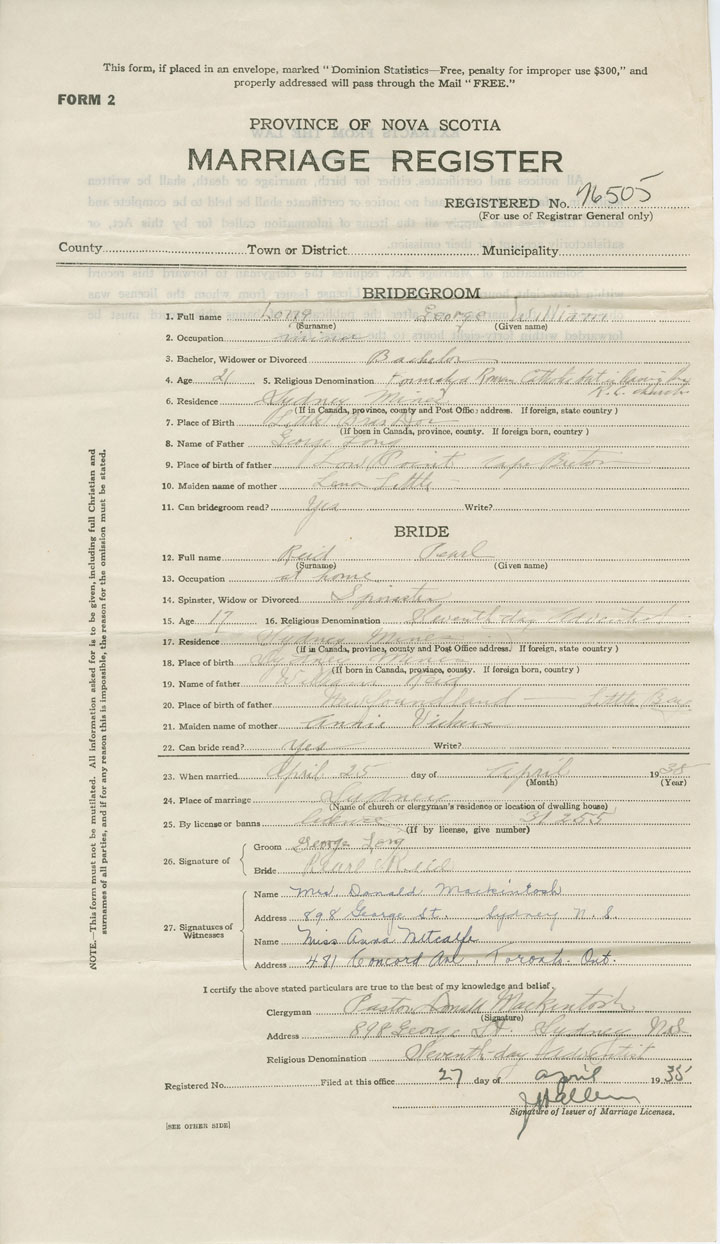 This form, if placed in an envelope, marked "Dominion Statistics—Free, penalty for improper use $300," and
properly addressed will pass through the Mail "FREE."
FORM 2
PROVINCE OF NOVA SCOTIA
MARRIAGE REGISTER
REGISTERED No. 76505
(For use of Registrar General only)
County Town or District Municipality
BRIDEGROOM
1. Full name Long George William
(Surname) (Given name)
2. Occupation miner
3. Bachelor, Widower or Divorced Bachelor
4. Age 21 5. Religious Denomination Formerly a Roman Catholic but is leaving the
R. C. church
6. Residence Sydney Mines
(If in Canada, province, county and Post Office address. If foreign, state country)
7. Place of Birth Little Bras Dor
(If born in Canada, province, county. If foreign born, country)
8. Name of Father George Long
9. Place of birth of father Low Point Cape Breton
10. Maiden name of mother Lena Little
11. Can bridegroom read? Yes Write?
BRIDE
12. Full name Reid Pearl
(Surname) (Given name)
13. Occupation at home
14. Spinster, Widow or Divorced Spinster
15. Age 17 16. Religious Denomination Seventh-day Adventist
17. Residence Sydney Mines
(If in Canada, province, county and Post Office address. If foreign, state country)
18. Place of birth Sydney Mines
(If born in Canada, province, county. If foreign born, country)
19. Name of father William Reid
20. Place of birth of father Newfoundland — Little Bay
21. Maiden name of mother Annie Vickers
22. Can bride read? Yes Write?
23. When married April 25 day of April 1935
(Month) (Year)
24. Place of marriage Sydney
(Name of church or clergyman's residence or location of dwelling house)
25. By license or banns License 31255
(If by license, give number)
26. Signature of
Groom George Long
Bride Pearl Reid
27. Signatures of Witnesses
Name Mrs. Donald Mackintosh
Address 898 George St. Sydney N.S.
Name Miss Anna Metcalfe
Address 481 Concord Ave., Toronto. Ont.
I certify the above stated particulars are true to the best of my knowledge and belief,
Clergyman Pastor Donald Mackintosh
(Signature)
Address 898 George St. Sydney N.S.
Religious Denomination Seventh-day Adventist
Registered No. Filed at this office 27 day of april 1935
Signature of Issuer of Marriage Licenses.
[SEE OTHER SIDE]
NOTE.—This form must not be mutilated. All information asked for is to be given, including full Christian and
surnames of all parties, and if for any reason this is impossible, the reason for the omission must be stated.